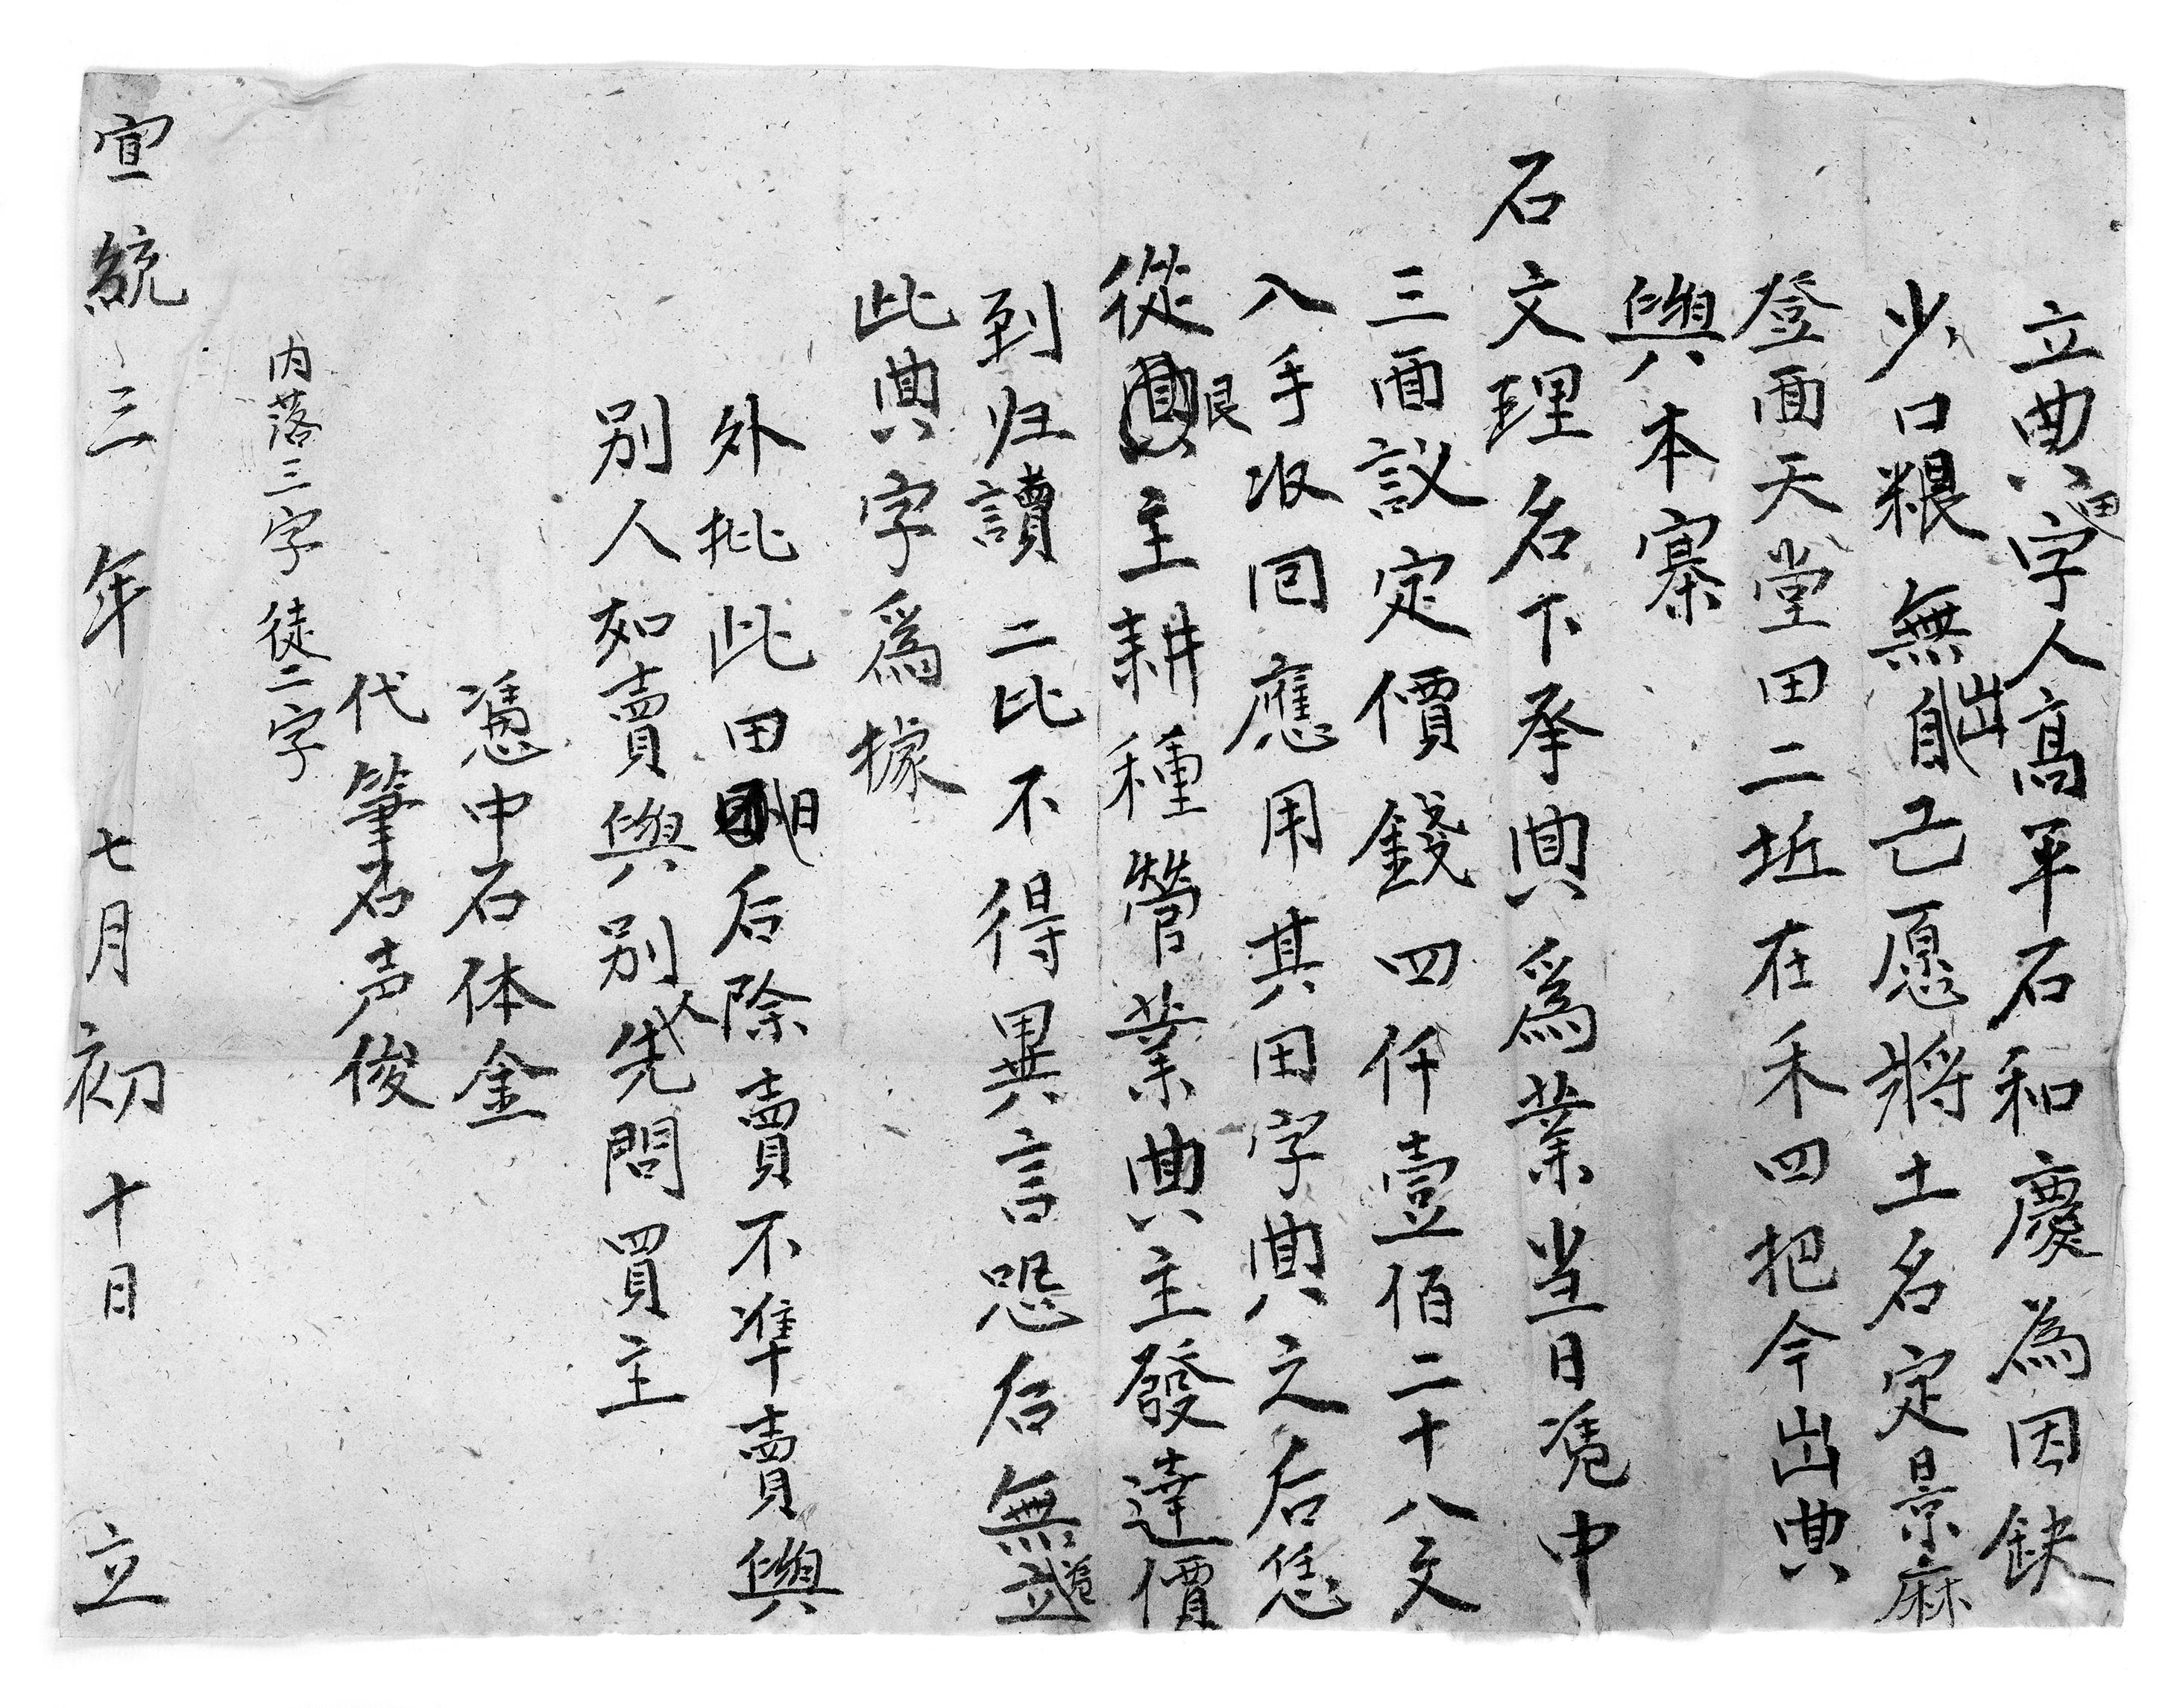 立典田字人高平石和慶為因缺
少口粮無出自己愿將土名定景麻
登面天堂田二坵在禾四把今出典
與本寨
石文理名下承典爲業当日凴中
三面議定價錢四仟壹佰二十八文
入手收回應用其田字典之后恁
從良主耕種管業典主發達價
到归讀二比不得異言恐后無凴立
此典字爲據
外批此田日后除賣不凖賣與
別人如賣與別人先問買主
憑中石体金
代筆石声俊
内落三字徒二字
宣統三年七月初十日立